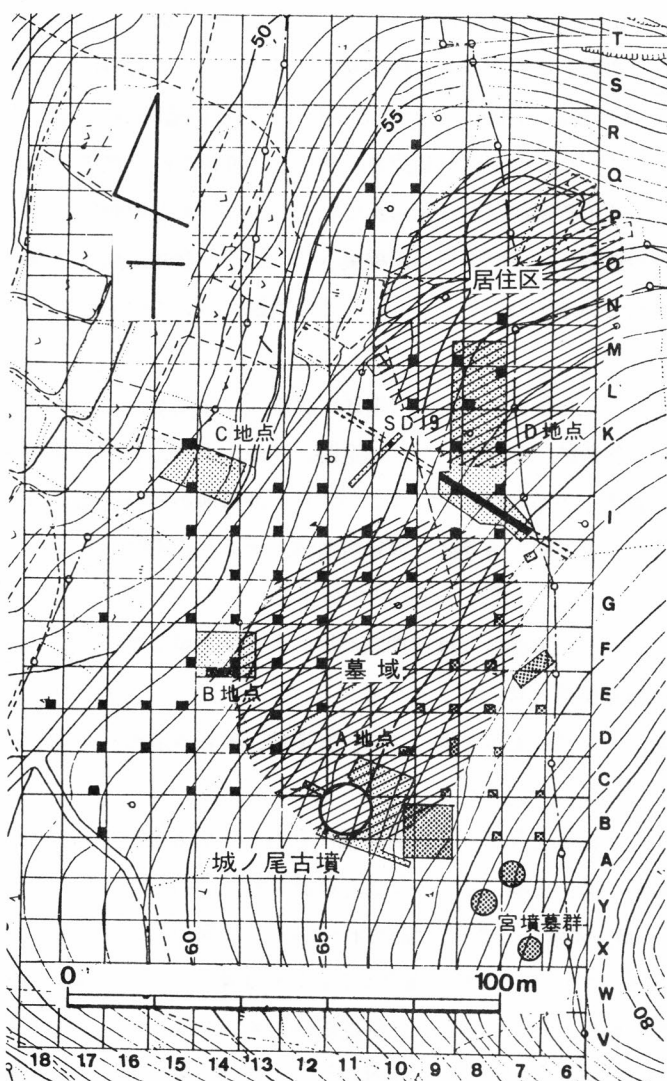 50
55
T
S
R
Q
P
O
N
M
L
K
I
G
F
E
D
C
B
A
Y
X
W
V
居住区
SD19
C地点
D地点
墓域
B地点
A地点
城ノ尾古墳
宮墳墓群
60
65
80
0
100m
18 17 16 15 14 13 12 11 10 9 8 7 6